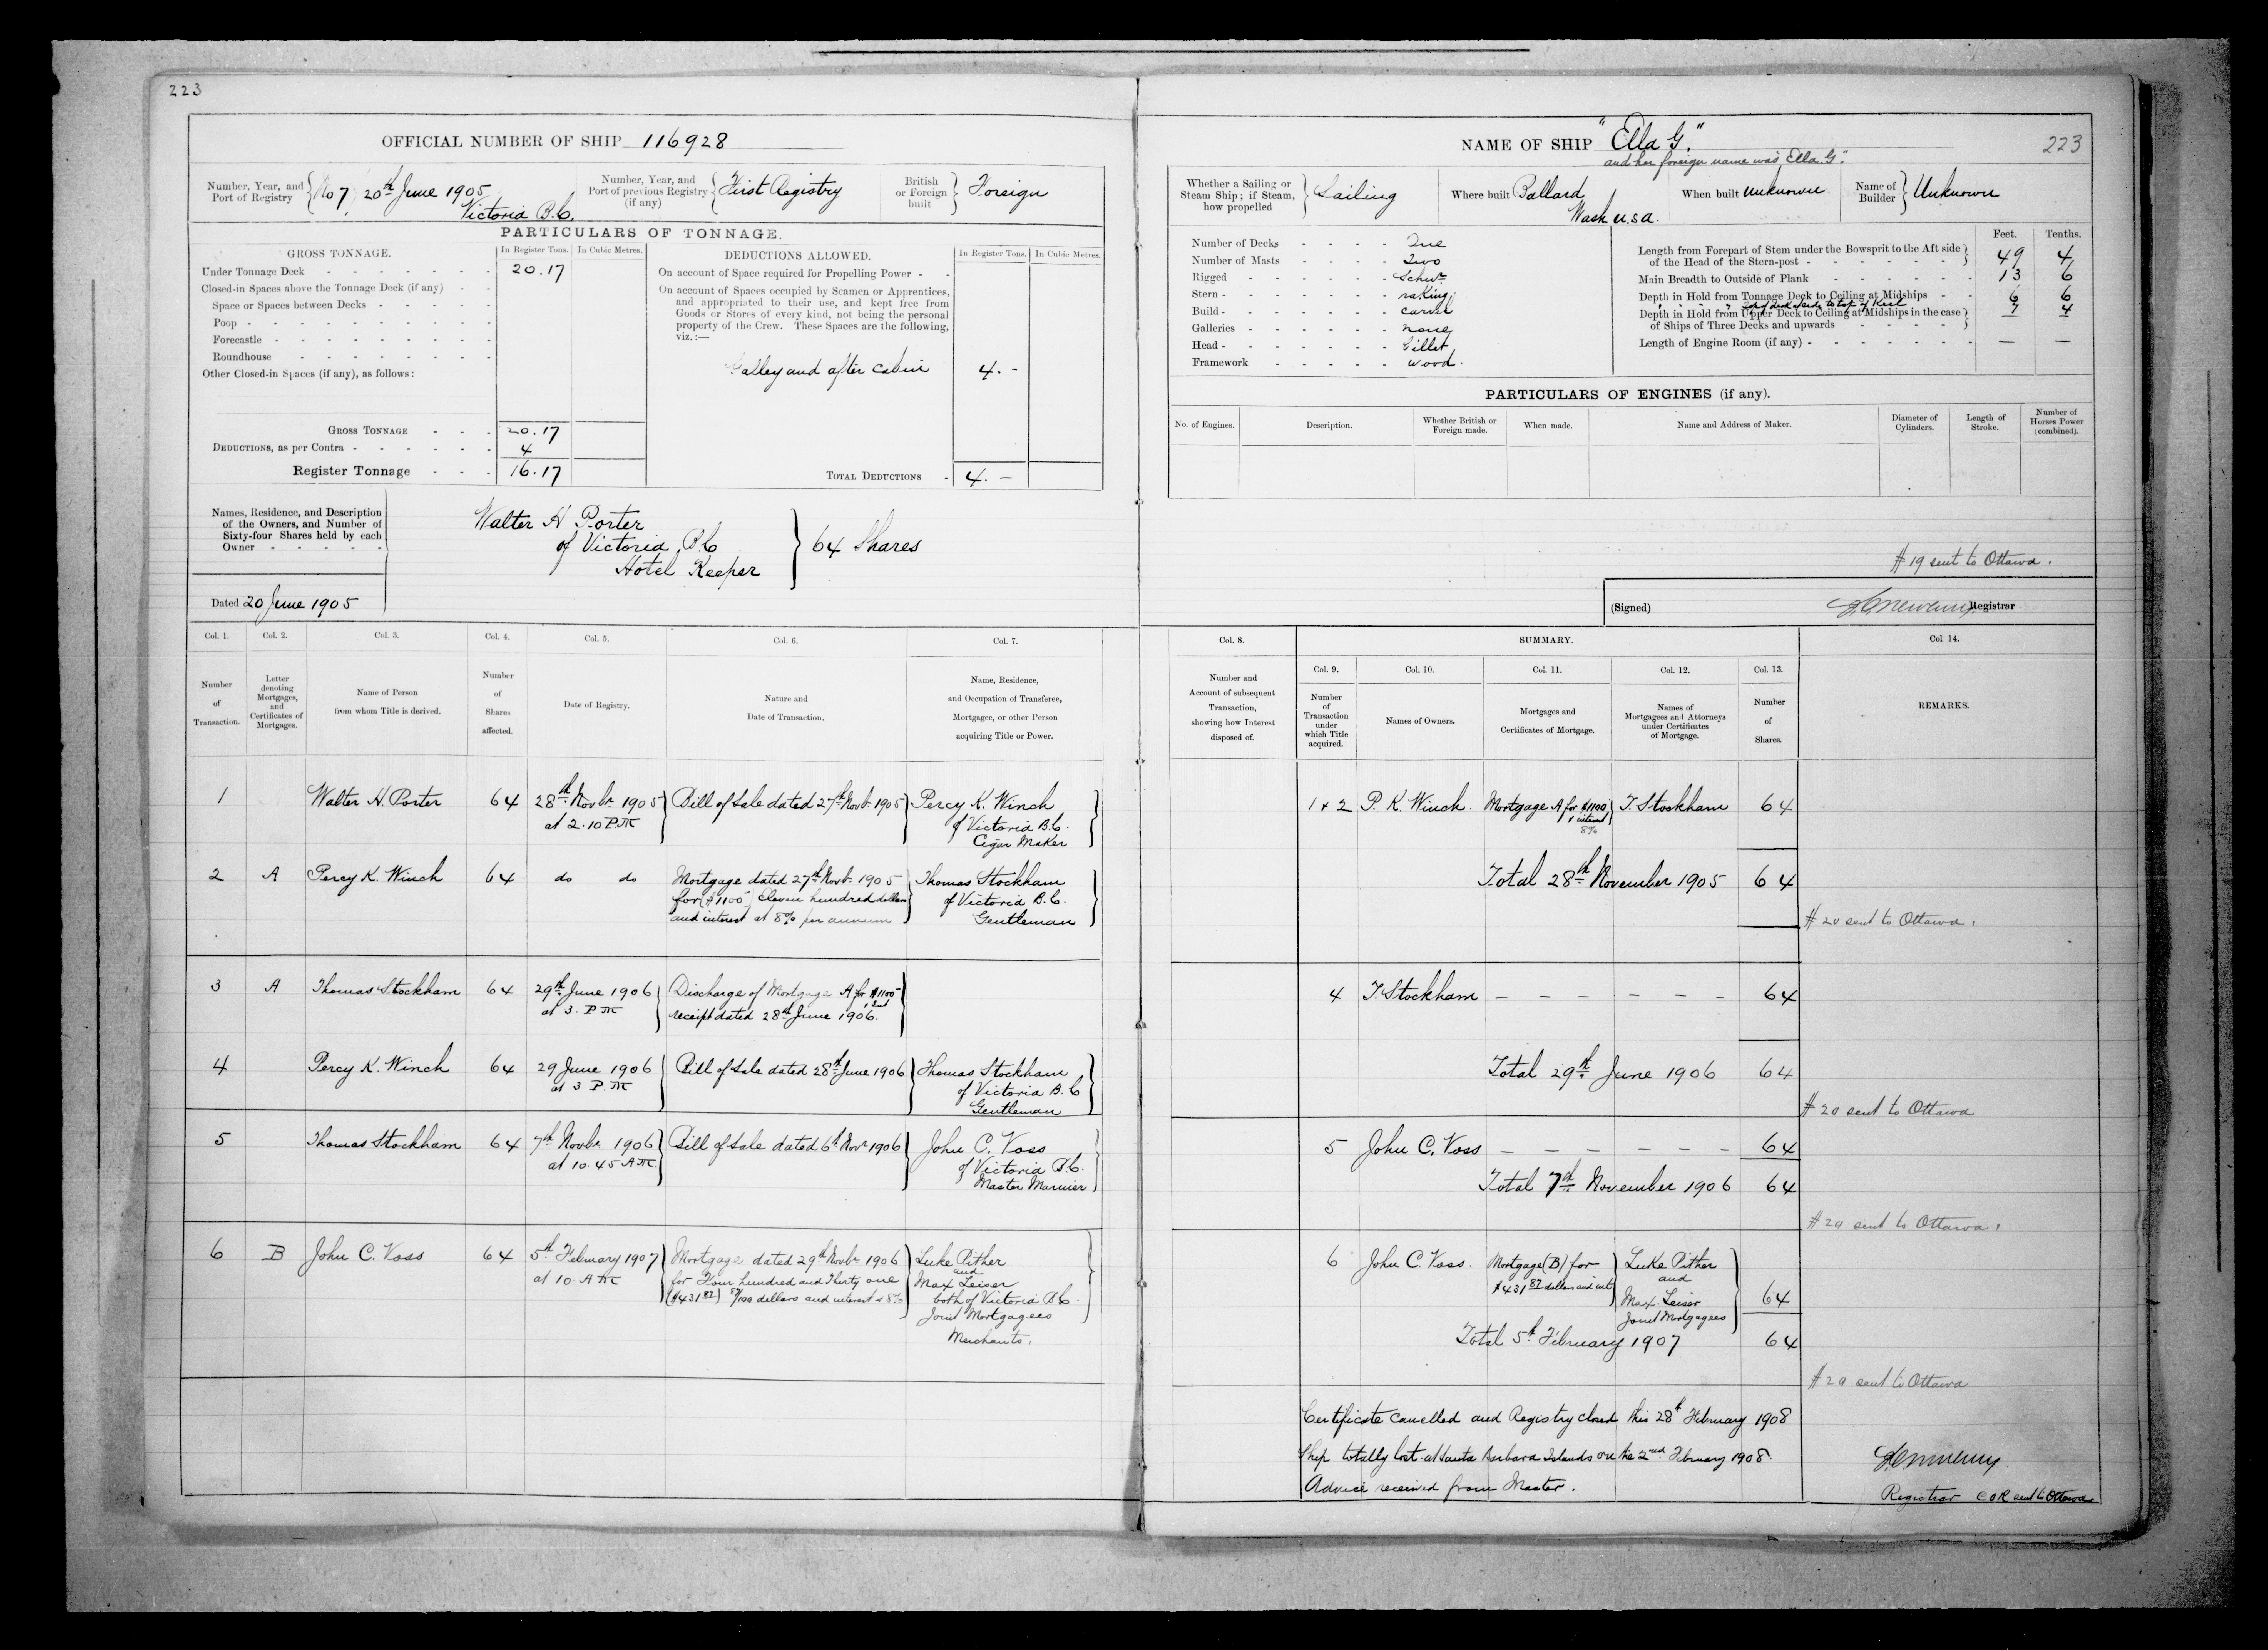 223
OFFICIAL NUMBER OF SHIP 116928
Number, Year, and Port of Registry { No 7, 20th June 1905
Victoria B.C.
Number, Year, and Port of previous Registry (if any) { First Registry
British or Foreign built } Foreign
PARTICULARS OF TONNAGE.
GROSS TONNAGE.
In Register Tons. In Cubic Metres.
Under Tonnage Deck - - - 20.17
Closed-in Spaces above the Tonnage Deck (if any) - -
Space or Spaces between Decks - - -
Poop - - -
Forecastle - - -
Roundhouse - - -
Other Closed-in Spaces (if any), as follows:
GROSS TONNAGE - - - 20.17
DEDUCTIONS, as per Contra - - - 4
Register Tonnage - - - 16.17
DEDUCTIONS ALLOWED.
In Register Tons. In Cubic Metres.
On account of Space required for Propelling Power - -
On account of Spaces occupied by Seamen or Apprentices,
and appropriated to their use, and kept free from
Goods or Stores of every kind, not being the personal
property of the Crew. These Spaces are the following,
viz.:—
Galley and after cabin 4. -
TOTAL DEDUCTIONS - 4. —
Names, Residence, and Description
of the Owners, and Number of
Sixty-four Shares held by each
Owner - - - - -
Walter H Porter
of Victoria, B.C
Hotel Keeper
} 64 Shares
Dated 20 June 1905
Col. 1. Col. 2. Col. 3. Col. 4. Col. 5. Col. 6. Col. 7.
Number of Transaction.
Letter denoting Mortgages, and Certificates of Mortgages.
Name of Person from whom Title is derived.
Number of Shares affected.
Date of Registry.
Nature and Date of Transaction.
Name, Residence, and Occupation of Transferee, Mortgagee, or other Person acquiring Title or Power.
1 Walter H. Porter 64 28th Novbr 1905 Bill of Sale dated 27th Novbr 1905 Percy K. Winch
at 2.10 P.M of Victoria B.C.
Cigar Maker
2 A Percy K. Winch 64 do do Mortgage dated 27th Novbr 1905 Thomas Stockham
for ($1100) Eleven hundred dollars of Victoria B.C.
and interest at 8% per annum Gentleman
3 A Thomas Stockham 64 29th June 1906 Discharge of Mortgage A for $1100
at 3. P.M receipt dated 28th June 1906.
4 Percy K. Winch 64 29 June 1906 Bill of Sale dated 28th June 1906 Thomas Stockham
at 3 P.M of Victoria B.C
Gentleman
5 Thomas Stockham 64 7th Novbr 1906 Bill of Sale dated 6th Novr 1906 John C. Voss
at 10.45 A.M. of Victoria B.C.
Master Mariner
6 B John C. Voss 64 5th February 1907 Mortgage dated 29th Novbr 1906 Luke Pither
at 10 A.M for Four hundred and Thirty one and
($431 87) 87/100 dollars and interest at 8% Max Leiser
both of Victoria B.C.
Joint Mortgagees
Merchants.
NAME OF SHIP "Ella G."
and her foreign name was "Ella G".
223
Whether a Sailing or Steam Ship; if Steam, how propelled } Sailing
Where built Ballard
Wash U.S.A.
When built unknown
Name of Builder } Unknown
Number of Decks - - - - One
Number of Masts - - - - Two
Rigged - - - - Schnr
Stern - - - - raking
Build - - - - carvel
Galleries - - - - none
Head - - - - Billet
Framework - - - - wood.
Feet. Tenths.
Length from Forepart of Stem under the Bowsprit to the Aft side
of the Head of the Stern-post - - - 49 4
Main Breadth to Outside of Plank - - - 13 6
Depth in Hold from Tonnage Deck to Ceiling at Midships - - 6 6
top of deck at side to top of Keel
Depth in Hold from Upper Deck to Ceiling at Midships in the case
of Ships of Three Decks and upwards - - - 7 4
Length of Engine Room (if any) - - - — —
PARTICULARS OF ENGINES (if any).
No. of Engines. Description. Whether British or Foreign made. When made. Name and Address of Maker. Diameter of Cylinders. Length of Stroke. Number of Horses Power (combined).
# 19 sent to Ottawa.
(Signed) Registrar
Col. 8. SUMMARY. Col 14.
Col. 9. Col. 10. Col. 11. Col. 12. Col. 13.
Number and Account of subsequent Transaction, showing how Interest disposed of.
Number of Transaction under which Title acquired.
Names of Owners.
Mortgages and Certificates of Mortgage.
Names of Mortgagees and Attorneys under Certificates of Mortgage.
Number of Shares.
REMARKS.
1 & 2 P. K. Winch. Mortgage A for $1100 T. Stockham 64
& interest
8%
Total 28th November 1905 64
# 20 sent to Ottawa.
4 T. Stockham — — — — — — 64
Total 29th June 1906 64
# 20 sent to Ottawa
5 John C. Voss — — — — — — 64
Total 7th November 1906 64
# 20 sent to Ottawa.
6 John C. Voss. Mortgage (B) for Luke Pither
$431 87 dollars and int and
Max. Leiser 64
Joint Mortgagees
Total 5th February 1907 64
# 20 sent to Ottawa
Certificate cancelled and Registry closed this 28th February 1908
Ship totally lost at Santa Barbara Islands on the 2nd February 1908.
Advice received from Master.
Registrar C O R sent to Ottawa